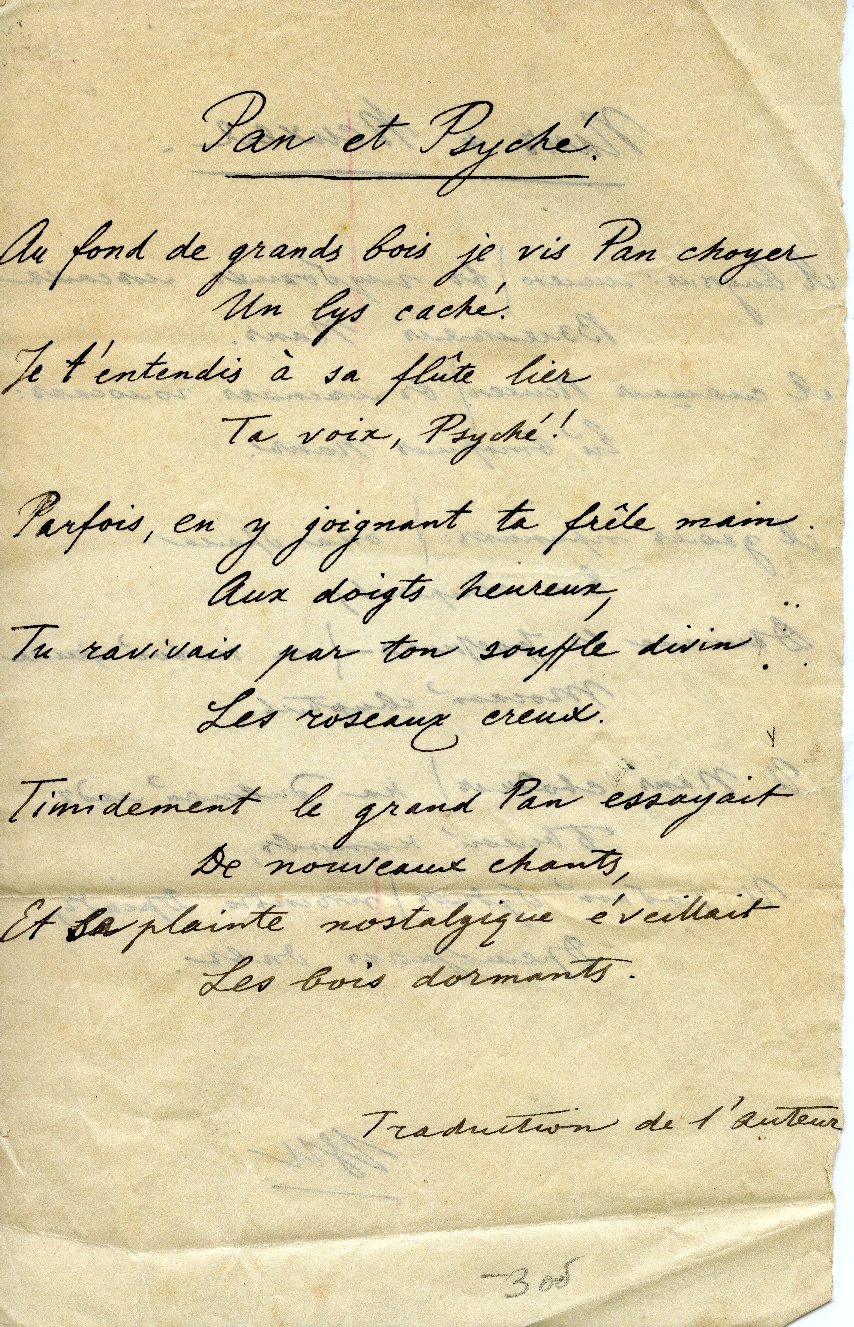 Pan et Psyché.
Au fond de grands bois je vis Pan choyer
Un lys caché.
Je t'entendis à sa flûte lier
Ta voix, Psyché!
Parfois, en y joignant ta frêle main
Aux doigts heureux,
Tu ravivais par ton souffle divin
Les roseaux creux.
Timidement le grand Pan essayait
De nouveaux chants,
Et sa plainte nostalgique éveillait
Les bois dormants.
Traduction de l'auteur